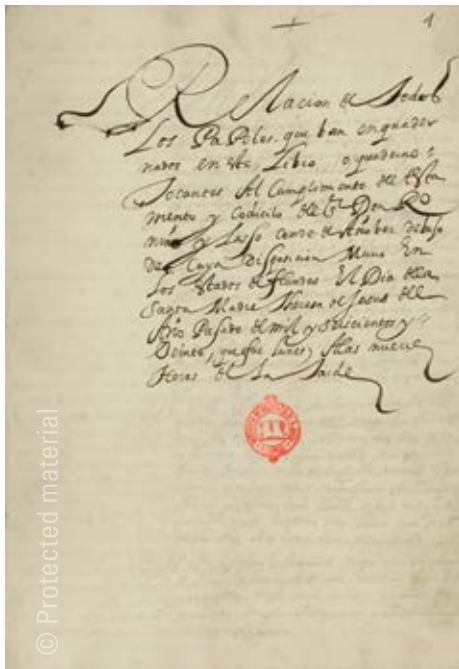 1
Relacion de todos
Los Papeles que ban enquader
nados en este Libro o quaderno
tocantes Al Cumplimiento del testa
mento y Codicilo del Sr Don Ro
y Lasso Conde de Añober debajo
de Cuya Disposicion Murio En
Los estados de flandes El Dia de la
Santa Madre theresa de Jesus del
Año Pasado de mil y seiscientos y
Veinte, que fue lunes, A las nueve
Horas de La tarde
© Protected material